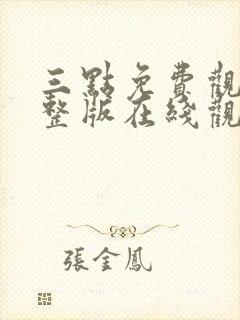 三點免費觀
整版在綫觀
張金鳳